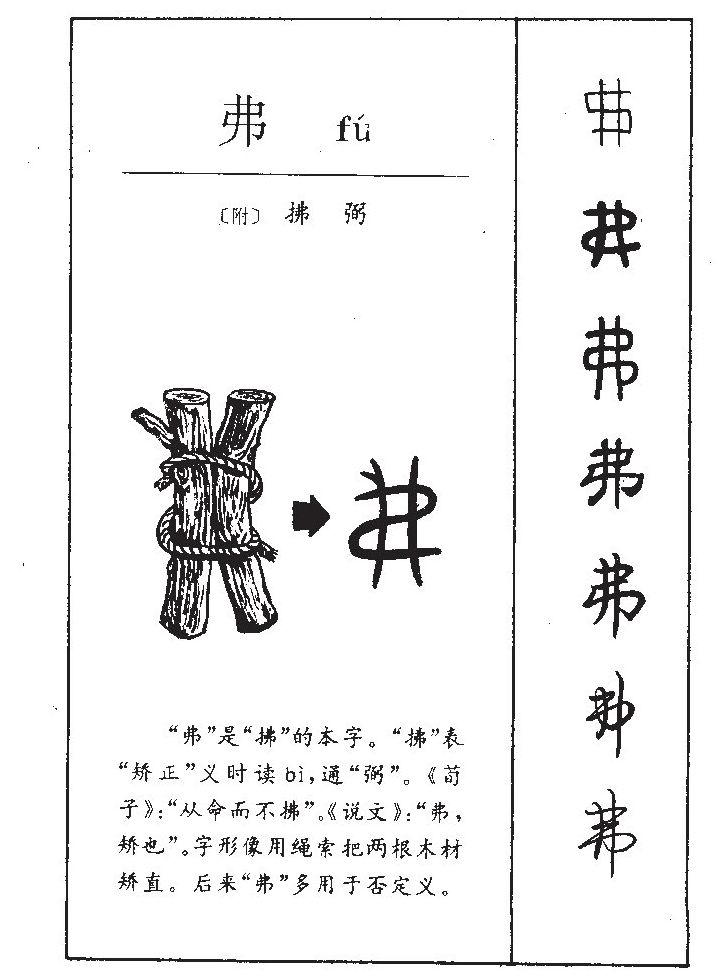 弗 fú
〔附〕 拂 弼
“弗”是“拂”的本字。“拂”表
“矫正”义时读bì,通“弼”。《荀
子》:“从命而不拂”。《说文》:“弗,
矫也”。字形像用绳索把两根木材
矫直。后来“弗”多用于否定义。
弗
弗
弗
弗
弗
弗
弗
弗